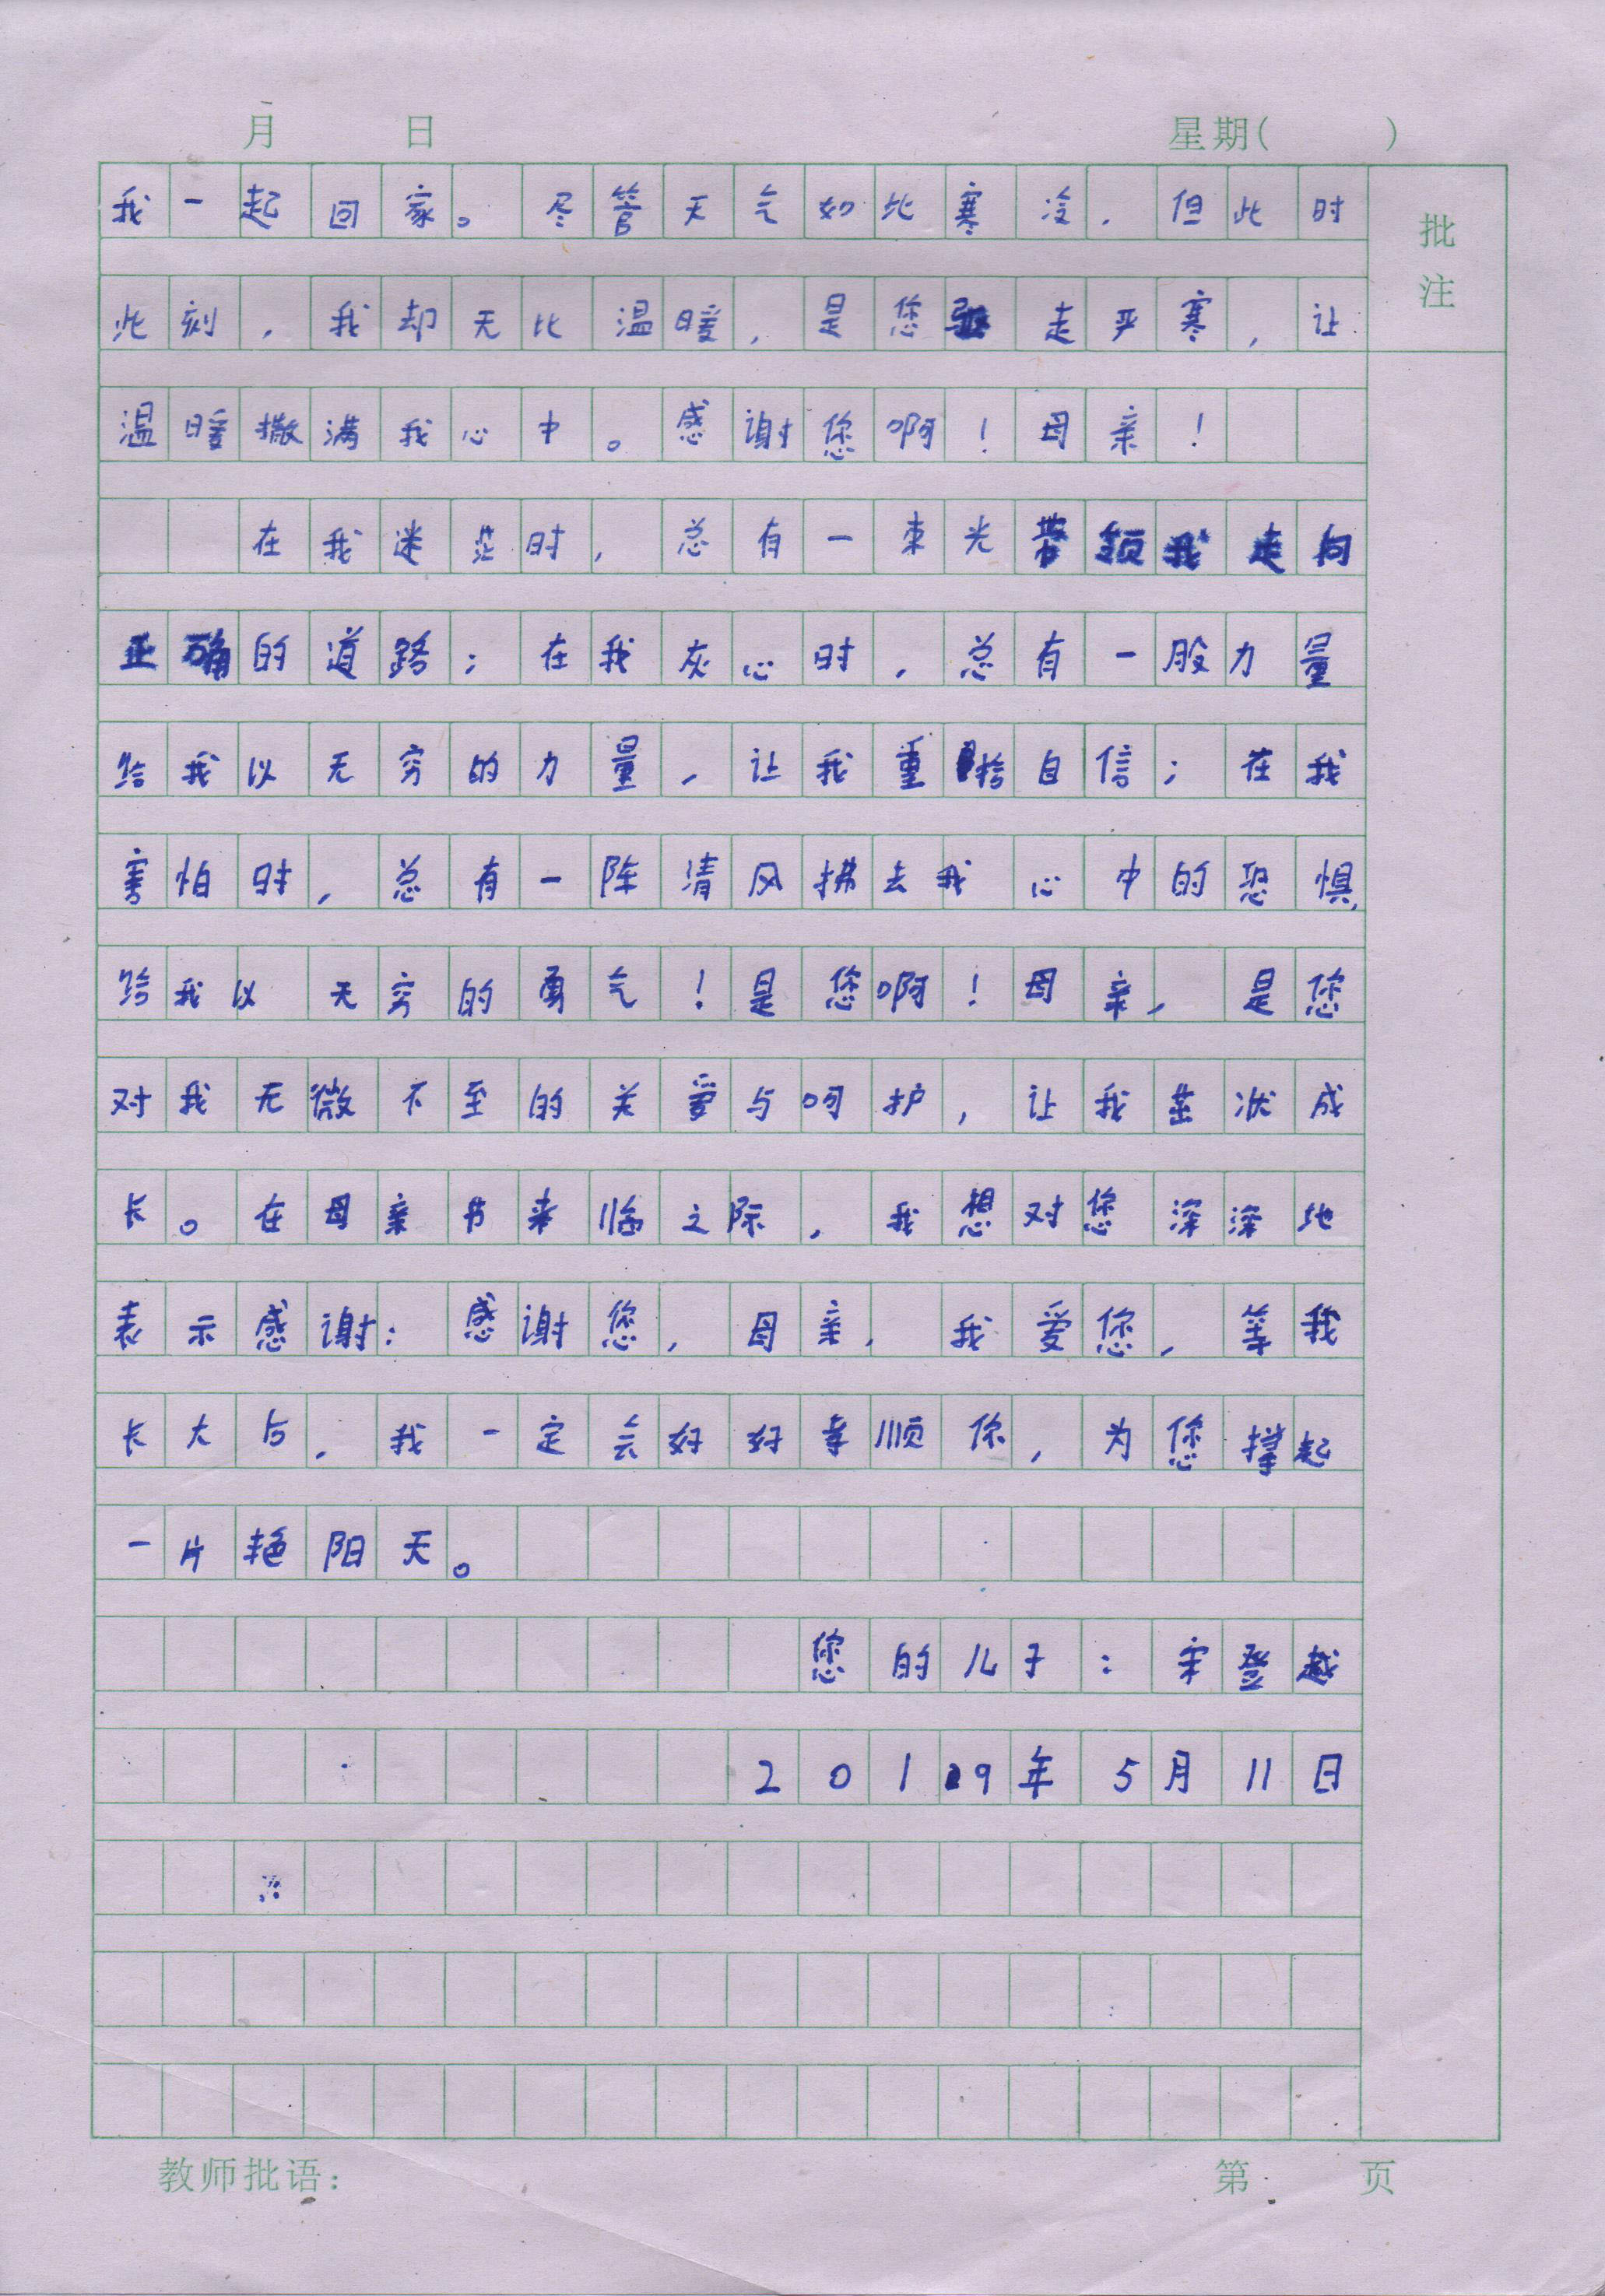 月 日 星期( )
批注
我一起回家。尽管天气如此寒冷，但此时
此刻，我却无比温暖，是您驱走严寒，让
温暖撒满我心中。感谢您啊！母亲！
在我迷茫时，总有一束光带领我走向
正确的道路；在我灰心时，总有一股力量
给我以无穷的力量，让我重拾自信；在我
害怕时，总有一阵清风拂去我心中的恐惧，
给我以无穷的勇气！是您啊！母亲，是您
对我无微不至的关爱与呵护，让我茁状成
长。在母亲节来临之际，我想对您深深地
表示感谢：感谢您，母亲，我爱您，等我
长大后，我一定会好好孝顺你，为您撑起
一片艳阳天。
您的儿子：宋登越
2019年5月11日
教师批语： 第 页